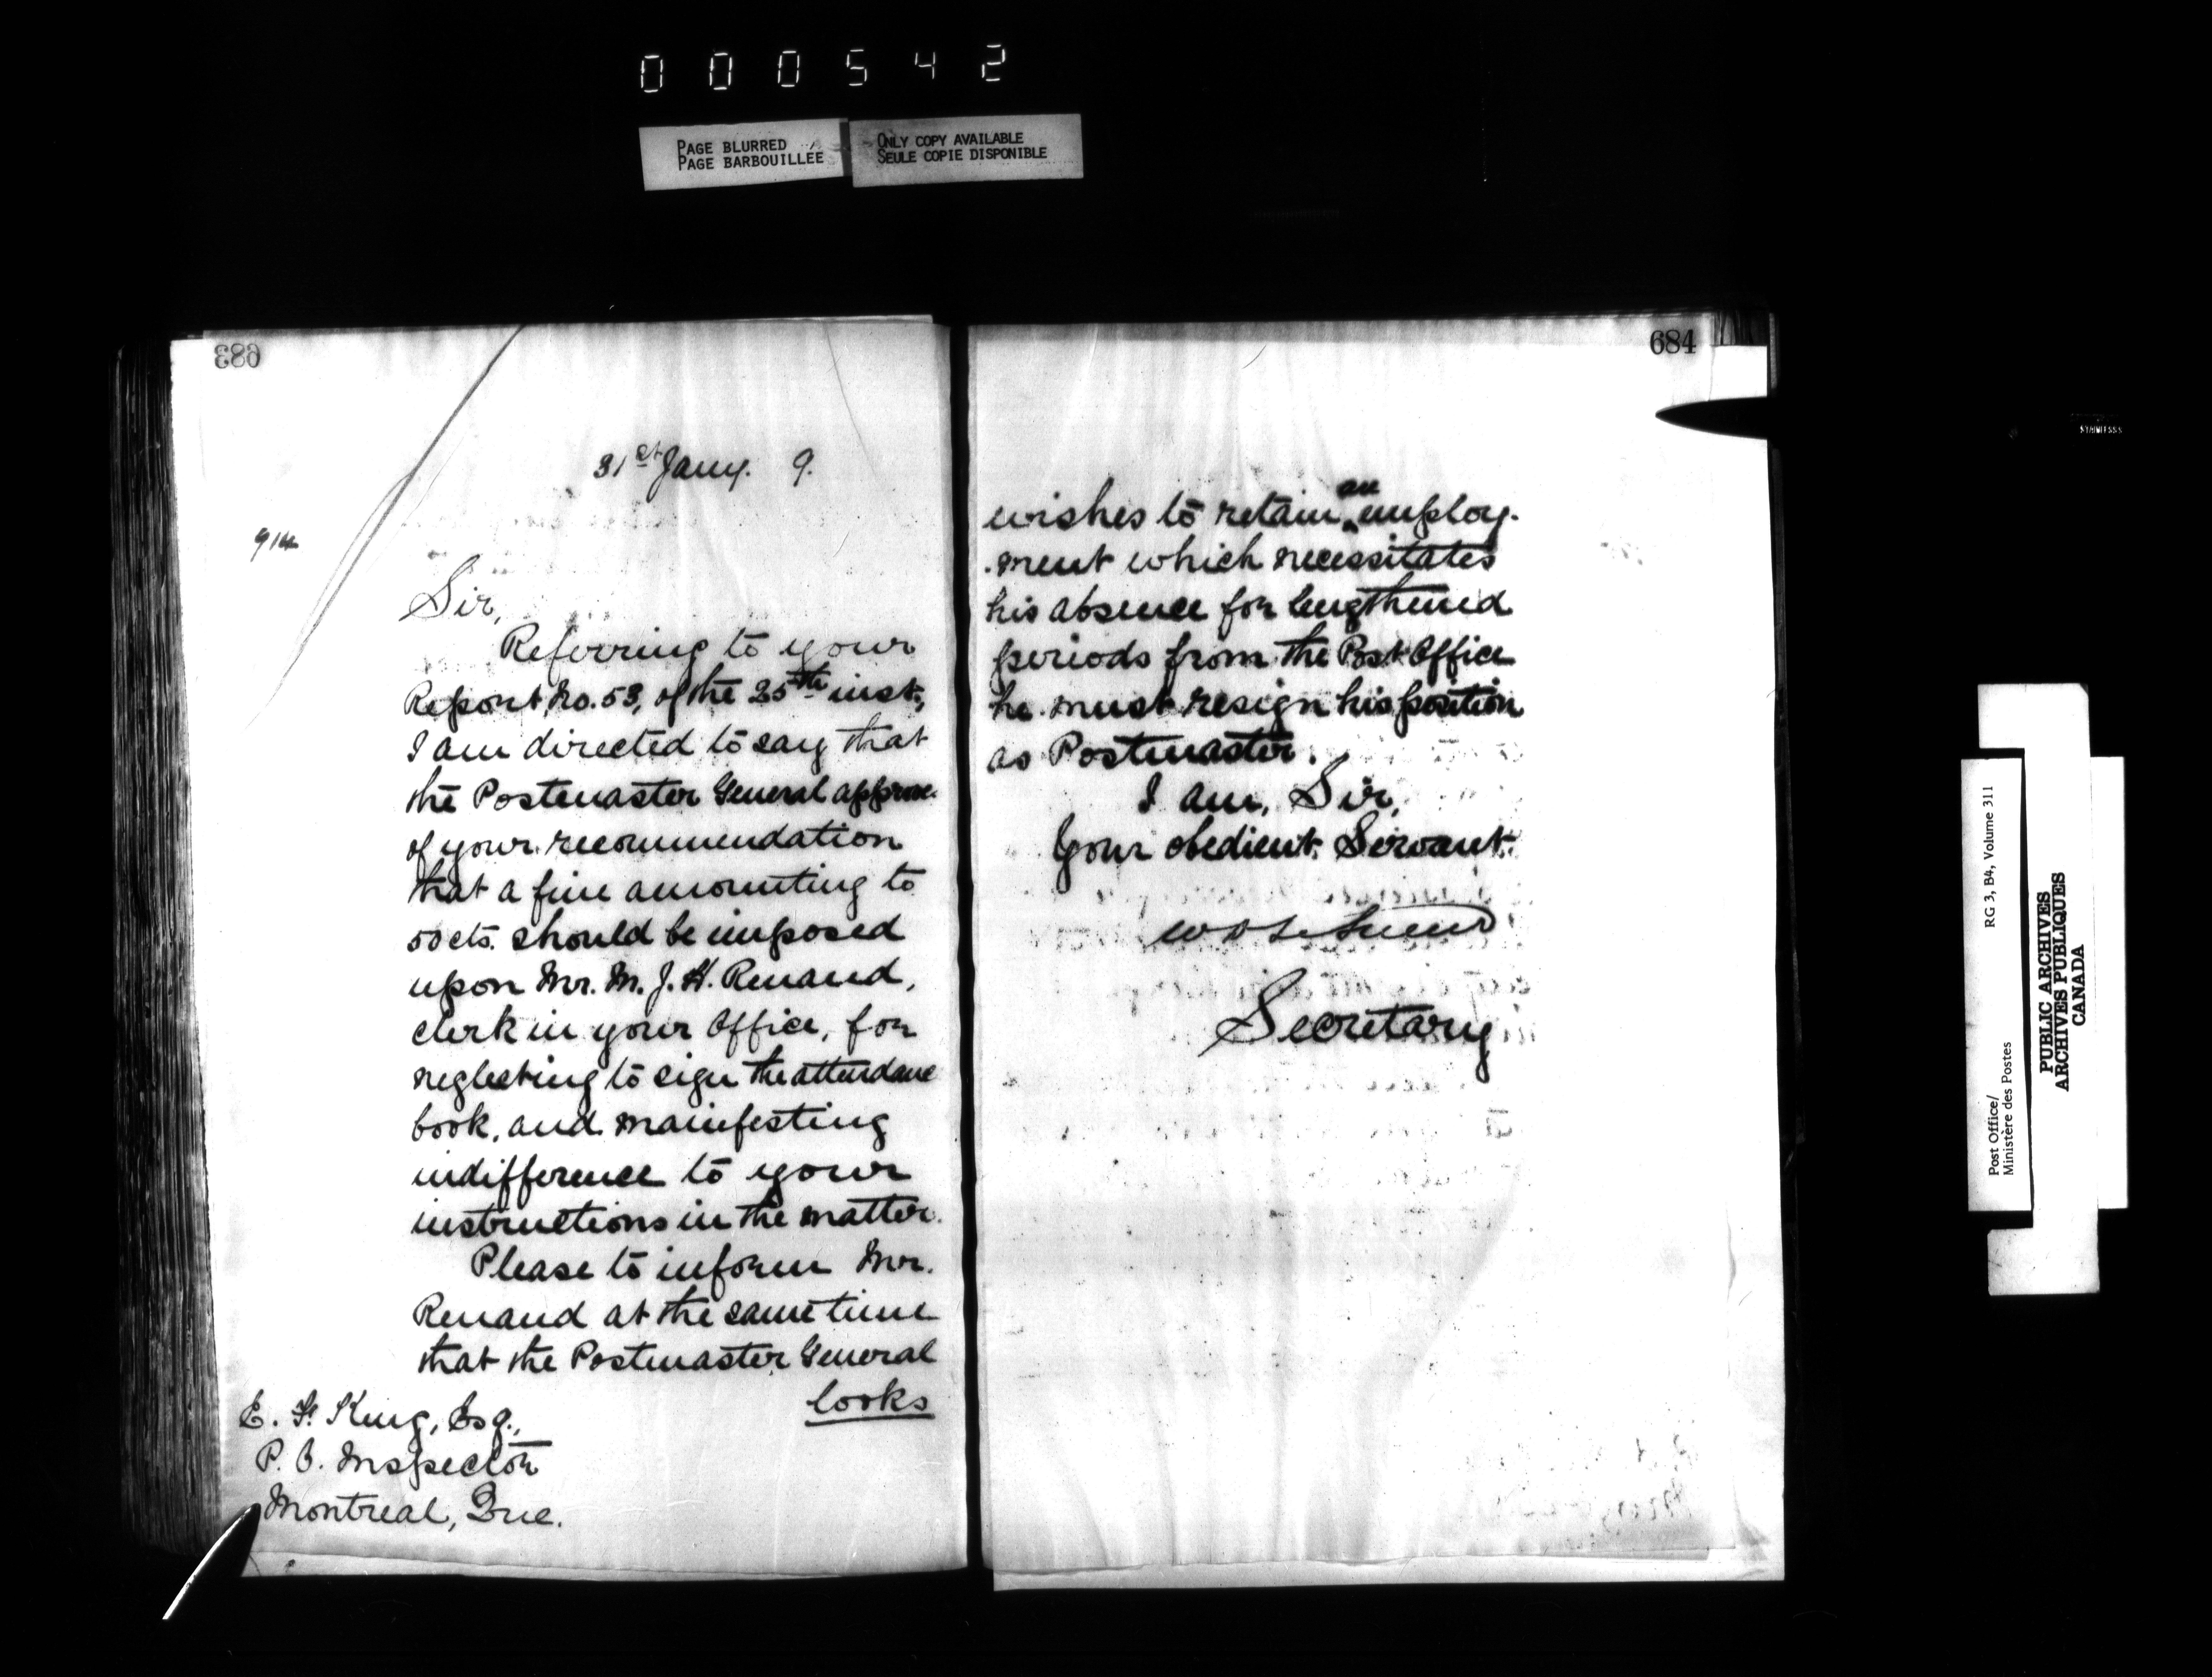 000542
PAGE BLURRED
PAGE BARBOUILLÉE
ONLY COPY AVAILABLE
SEULE COPIE DISPONIBLE
683
31st Jany. 9.
914
Sir,
Referring to your
Report, No. 53, of the 25th inst.,
I am directed to say that
the Postmaster General approves
of your recommendation
that a fine amounting to
50 cts. should be imposed
upon Mr. M. J. H. Renaud,
clerk in your Office, for
neglecting to sign the attendance
book, and manifesting
indifference to your
instructions in the matter.
Please to inform Mr.
Renaud at the same time
that the Postmaster General
looks
E. F. King, Esq.,
P. O. Inspector
Montreal, Que.
684
wishes to retain an employ-
-ment which necessitates
his absence for lengthened
periods from the Post Office
he must resign his position
as Postmaster.
I am, Sir,
Your obedient Servant.
Secretary
STAINLESS
Post Office/
Ministère des Postes
RG 3, B4, Volume 311
PUBLIC ARCHIVES
ARCHIVES PUBLIQUES
CANADA